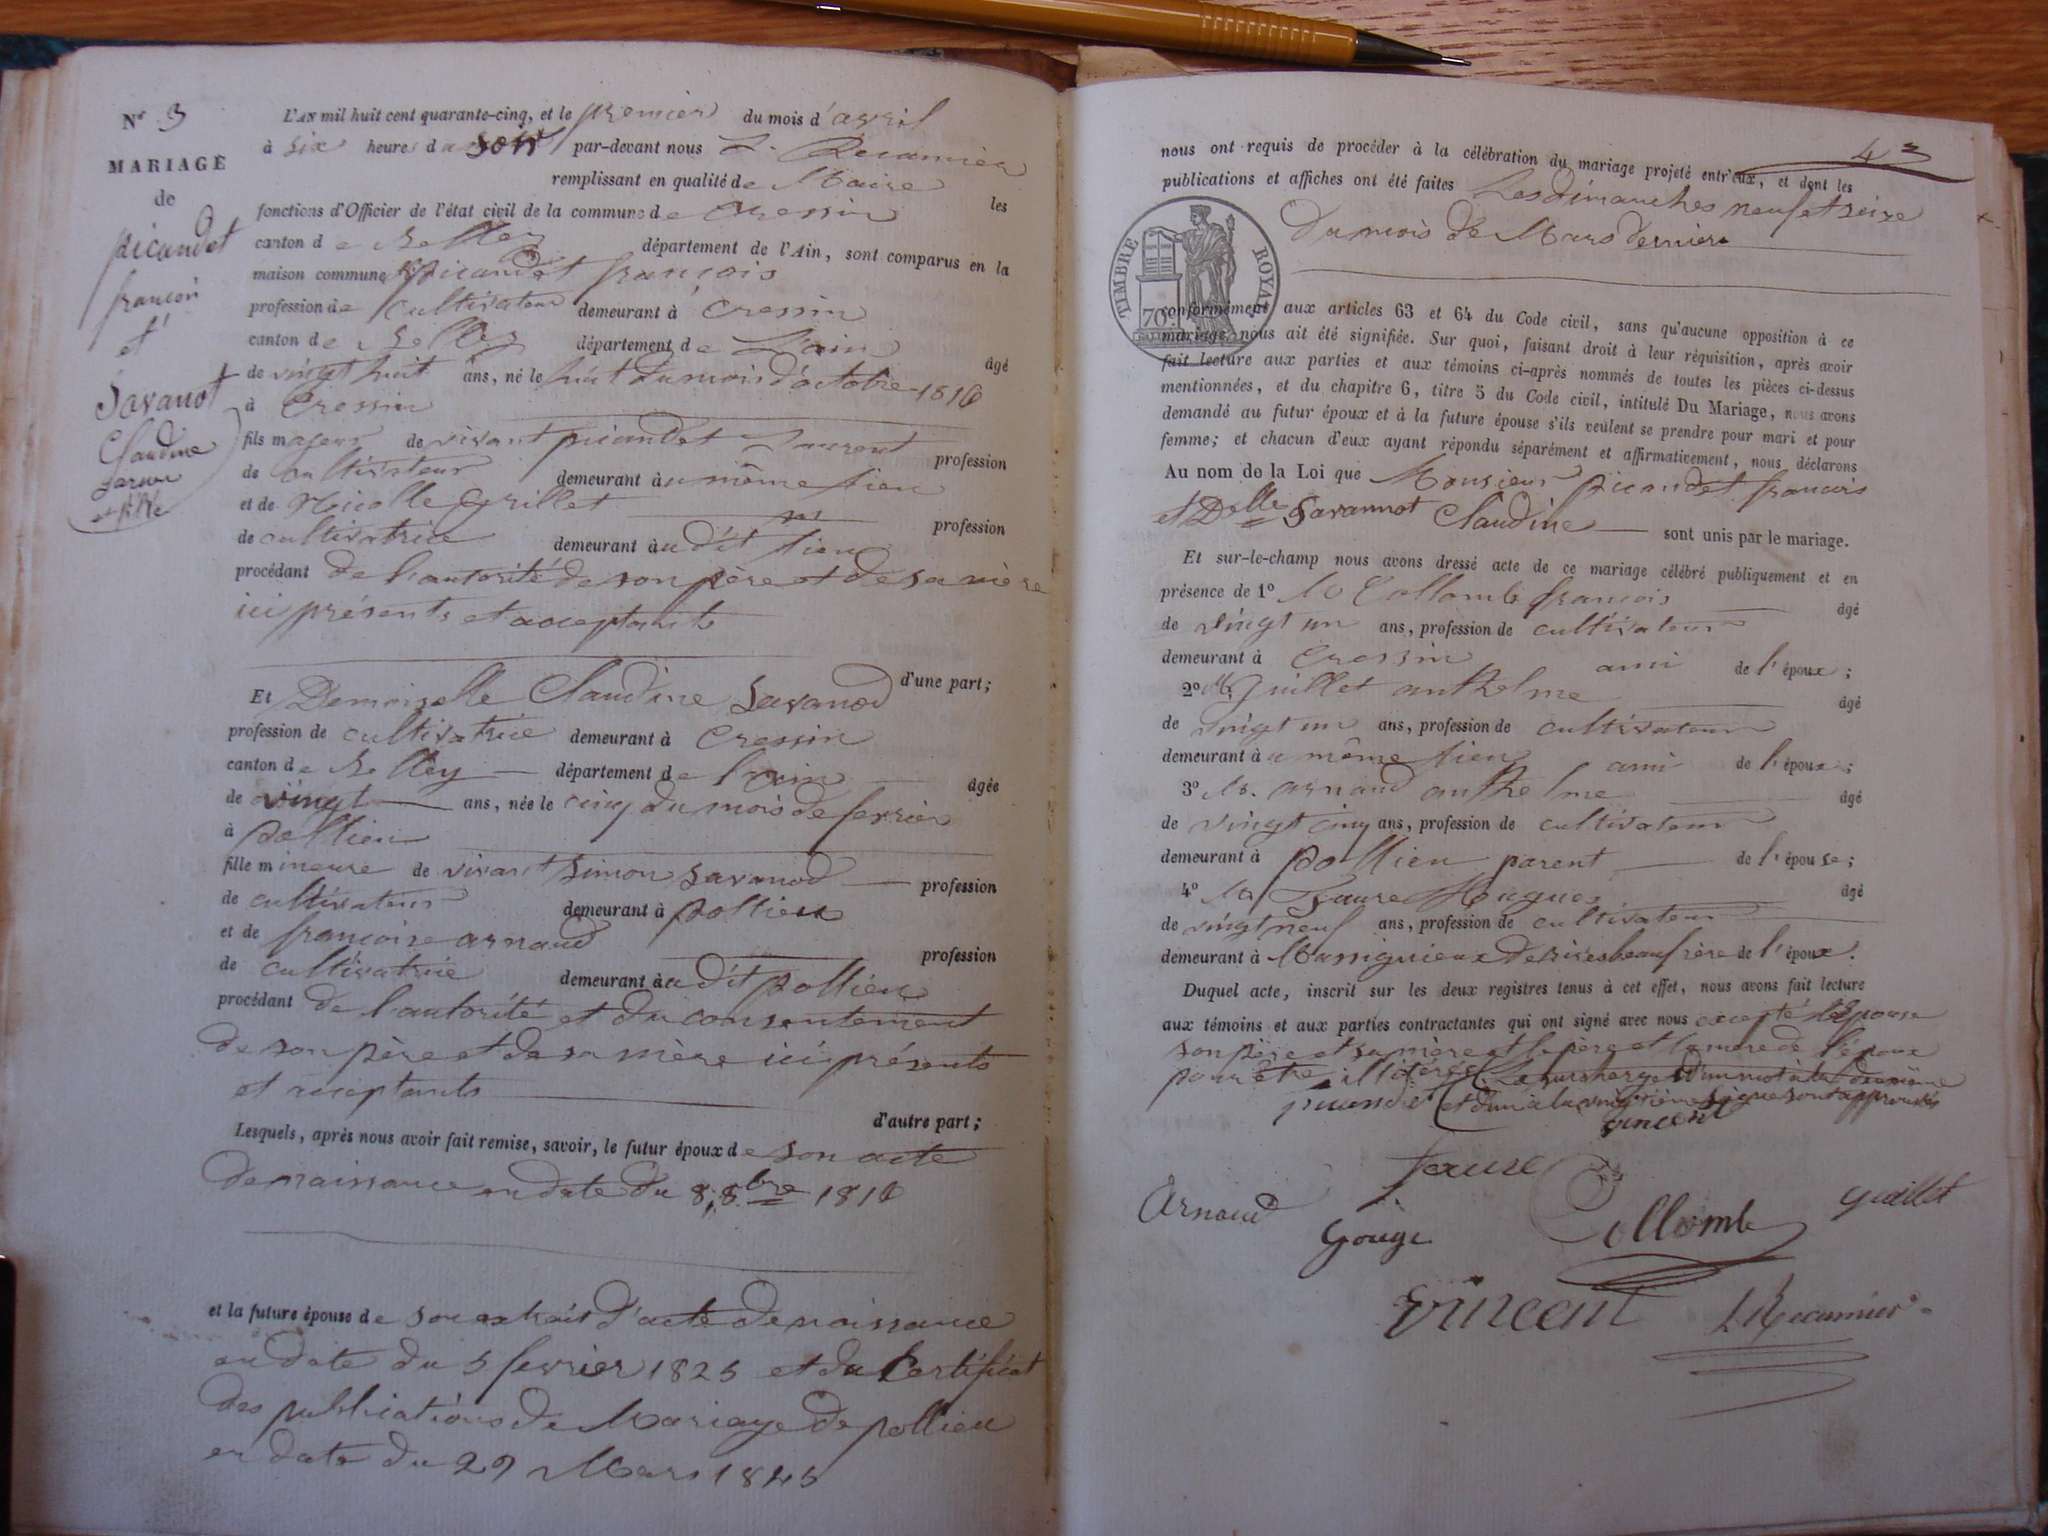 N° 3
MARIAGE
de
picandet
françois
et
Savanot
Claudine
L'AN mil huit cent quarante-cinq, et le premier du mois d'avril
à six heures du soir par-devant nous L. Recamier
remplissant en qualité de Maire les
fonctions d'Officier de l'état civil de la commune de Cressin
canton de Belley département de l'Ain, sont comparus en la
maison commune picandet françois
profession de cultivateur demeurant à Cressin
canton de Belley département de L'ain âgé
de vingt huit ans, né le huit du mois d'octobre 1816
à Cressin
fils majeur de vivant picandet Laurent profession
de cultivateur demeurant au même lieu
et de Nicolle Grillet profession
de cultivatrice demeurant audit lieu
procédant de l'autorité de son père et de sa mère
ici présents et acceptants
d'une part;
Et Demoiselle Claudine Savanod
profession de cultivatrice demeurant à Cressin
canton de Belley département de l'ain âgée
de vingt ans, née le cinq du mois de fevrier
à pollieu
fille mineure de vivant Simon Savanod profession
de cultivateur demeurant à pollieu
et de françoise arnaud profession
de cultivatrice demeurant audit pollieu
procédant de l'autorité et du consentement
de son père et de sa mère ici présents
et acceptants
d'autre part;
Lesquels, après nous avoir fait remise, savoir, le futur époux de son acte
de naissance en date du 8 8bre 1816
et la future épouse de son extrait d'acte de naissance
en date du 5 fevrier 1825 et du Certificat
des publications de Mariage de pollieu
en date du 29 Mars 1845
43
nous ont requis de procéder à la célébration du mariage projeté entr'eux, et dont les
publications et affiches ont été faites Les dimanches neuf et seize
Du mois de Mars dernier
TIMBRE ROYAL
70
conformément aux articles 63 et 64 du Code civil, sans qu'aucune opposition à ce
mariage nous ait été signifiée. Sur quoi, faisant droit à leur réquisition, après avoir
fait lecture aux parties et aux témoins ci-après nommés de toutes les pièces ci-dessus
mentionnées, et du chapitre 6, titre 5 du Code civil, intitulé Du Mariage, nous avons
demandé au futur époux et à la future épouse s'ils veulent se prendre pour mari et pour
femme; et chacun d'eux ayant répondu séparément et affirmativement, nous déclarons
Au nom de la Loi que Monsieur picandet françois
et Delle Savannot Claudine sont unis par le mariage.
Et sur-le-champ nous avons dressé acte de ce mariage célébré publiquement et en
présence de 1° Mr Collomb françois âgé
de vingt un ans, profession de cultivateur
demeurant à Cressin ami de l'époux;
2° Mr Guillet anthelme âgé
de vingt un ans, profession de cultivateur
demeurant au même lieu ami de l'époux;
3° Mr. arnaud anthelme âgé
de vingt cinq ans, profession de cultivateur
demeurant à pollieu parent de l'épouse;
4° Mr Faure Hugues âgé
de vingt neuf ans, profession de cultivateur
demeurant à Massignieux de rives beaufrère de l'époux.
Duquel acte, inscrit sur les deux registres tenus à cet effet, nous avons fait lecture
aux témoins et aux parties contractantes qui ont signé avec nous excepté l'épouse
son père et sa mère et le père et la mère de l'époux
pour être illitérés La surcharge d'un mot à la deuxième
picandet et d'un à la vingtième ligne sont approuvés
Vincent
faure
Arnaud Collomb Guillet
Gouge
Vincent L Recamier